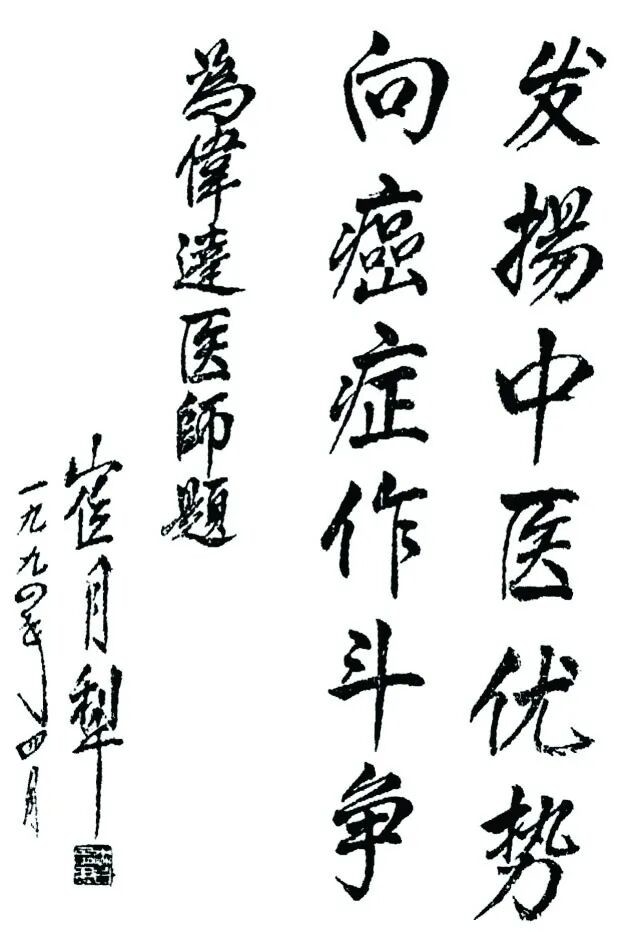 发揚中医优势
向癌症作斗争
為偉達医師題
崔月犁
一九九四年四月